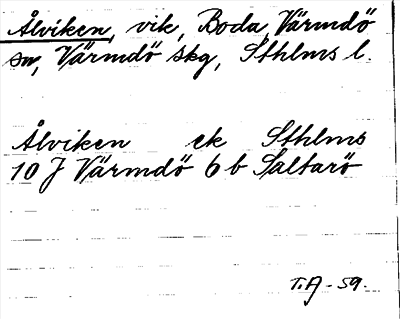 Ålviken, vik, Boda, Värmdö
sn, Värmdö skg, Sthlms l.
Ålviken ek Sthlms
10 J Värmdö 6 b Saltarö
T.A - 59.